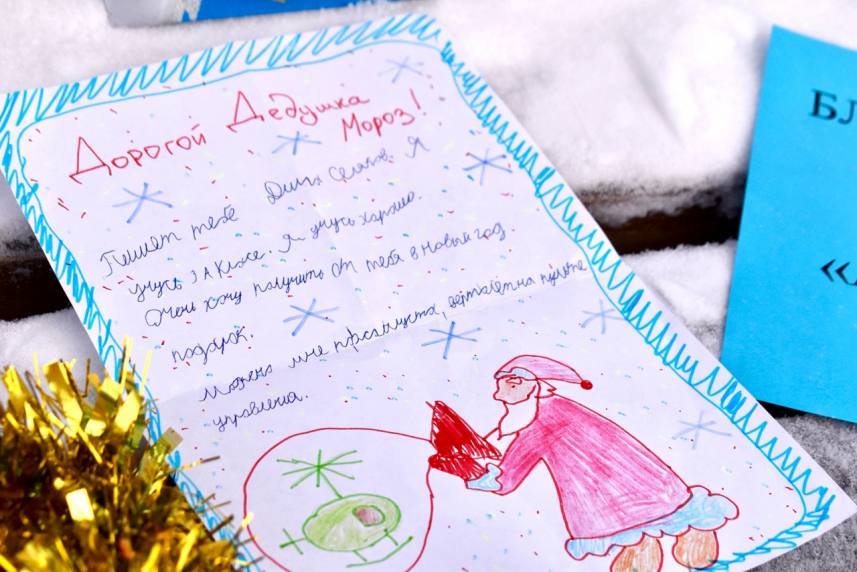 Дорогой Дедушка
Мороз!
Пишет тебе Дима Я
учусь 3 А класе. Я учусь харашо.
Очень хочу получить от тебя в Новый год
подарок.
Можна мне пожалуста, верталётна пульте
управления.
БЛ
«